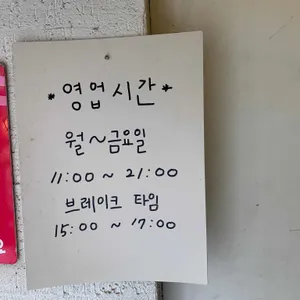 *영업시간*
월~금요일
11:00 ~ 21:00
브레이크 타임
15:00 ~ 17:00